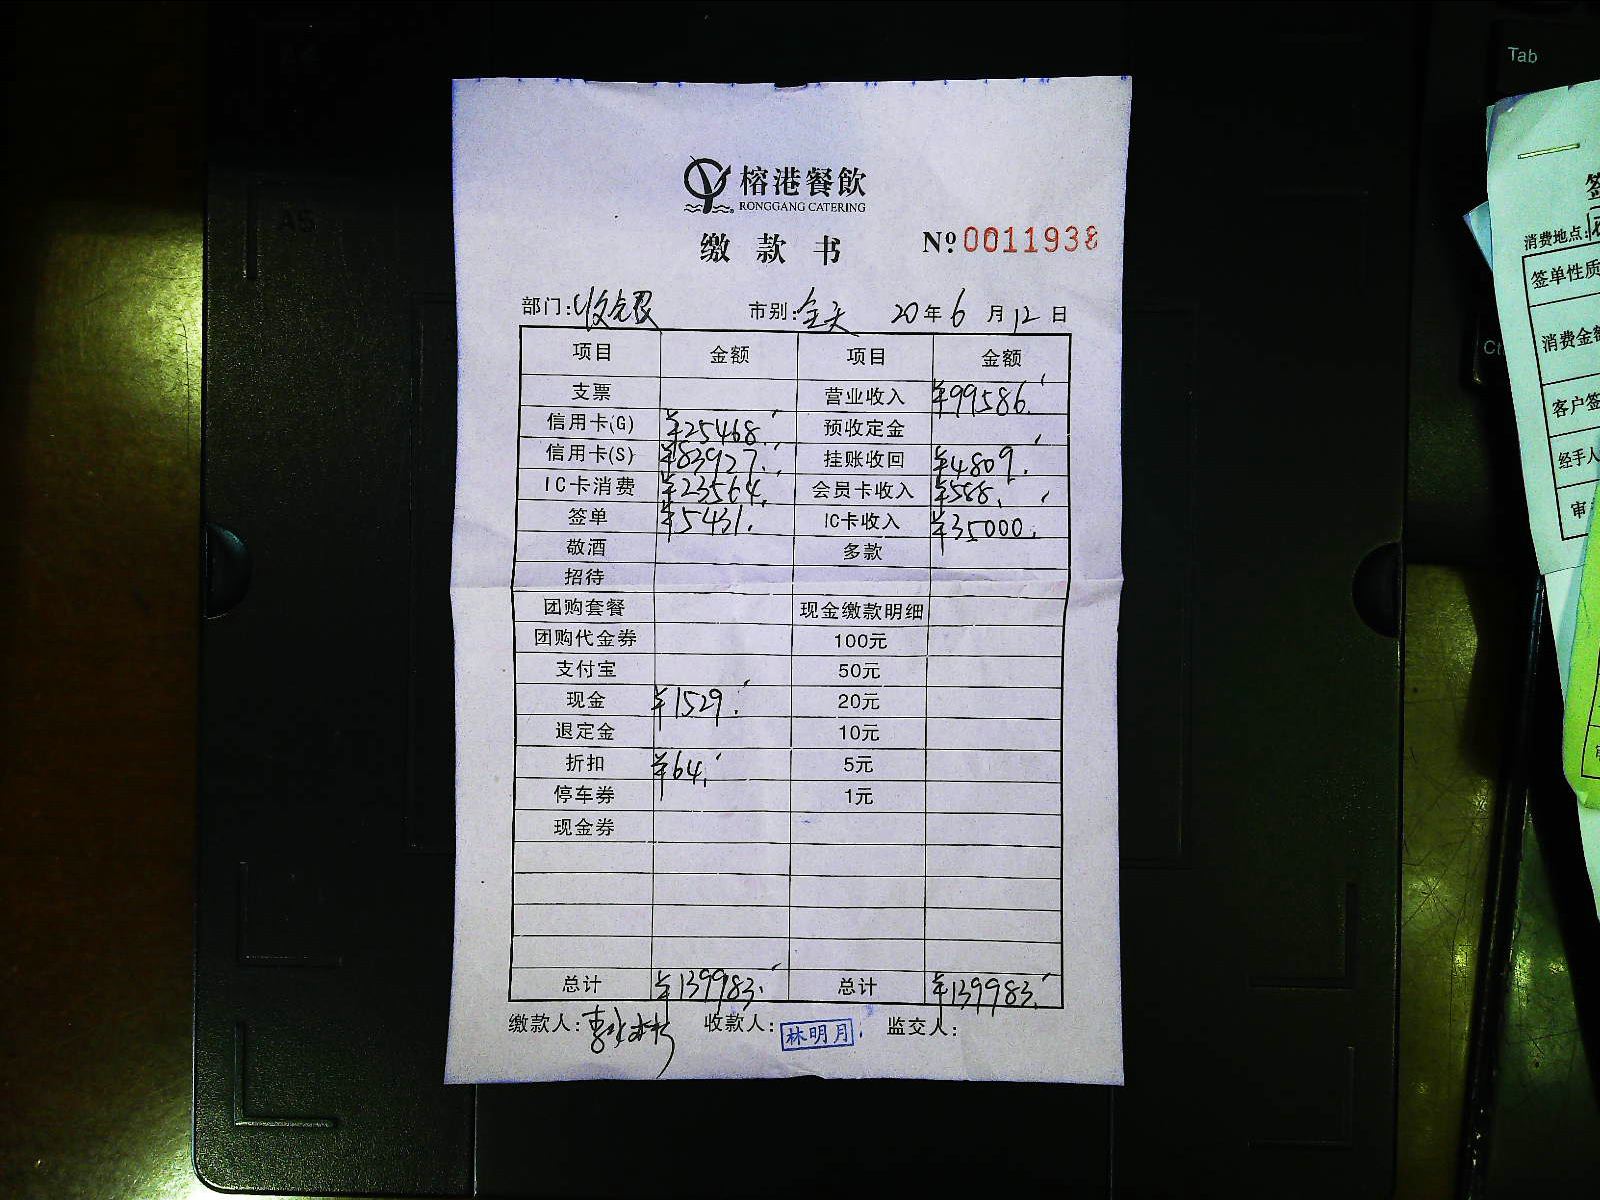 Tab
A5
榕港餐飲
RONGGANG CATERING
缴款书 Nº 0011938
部门:收银 市别:全天 20年6月12日
项目 金额 项目 金额
支票 营业收入 ¥99586.
信用卡(G) ¥25468. 预收定金
信用卡(S) ¥83927. 挂账收回 ¥4809.
IC卡消费 ¥23564. 会员卡收入 ¥588.
签单 ¥5431. IC卡收入 ¥35000.
敬酒 多款
招待
团购套餐 现金缴款明细
团购代金券 100元
支付宝 50元
现金 ¥1529. 20元
退定金 10元
折扣 ¥64. 5元
停车券 1元
现金券
总计 ¥139983. 总计 ¥139983.
缴款人: 收款人: 林明月 监交人:
消费地点:
签单性质
消费金额
客户签
经手人
审